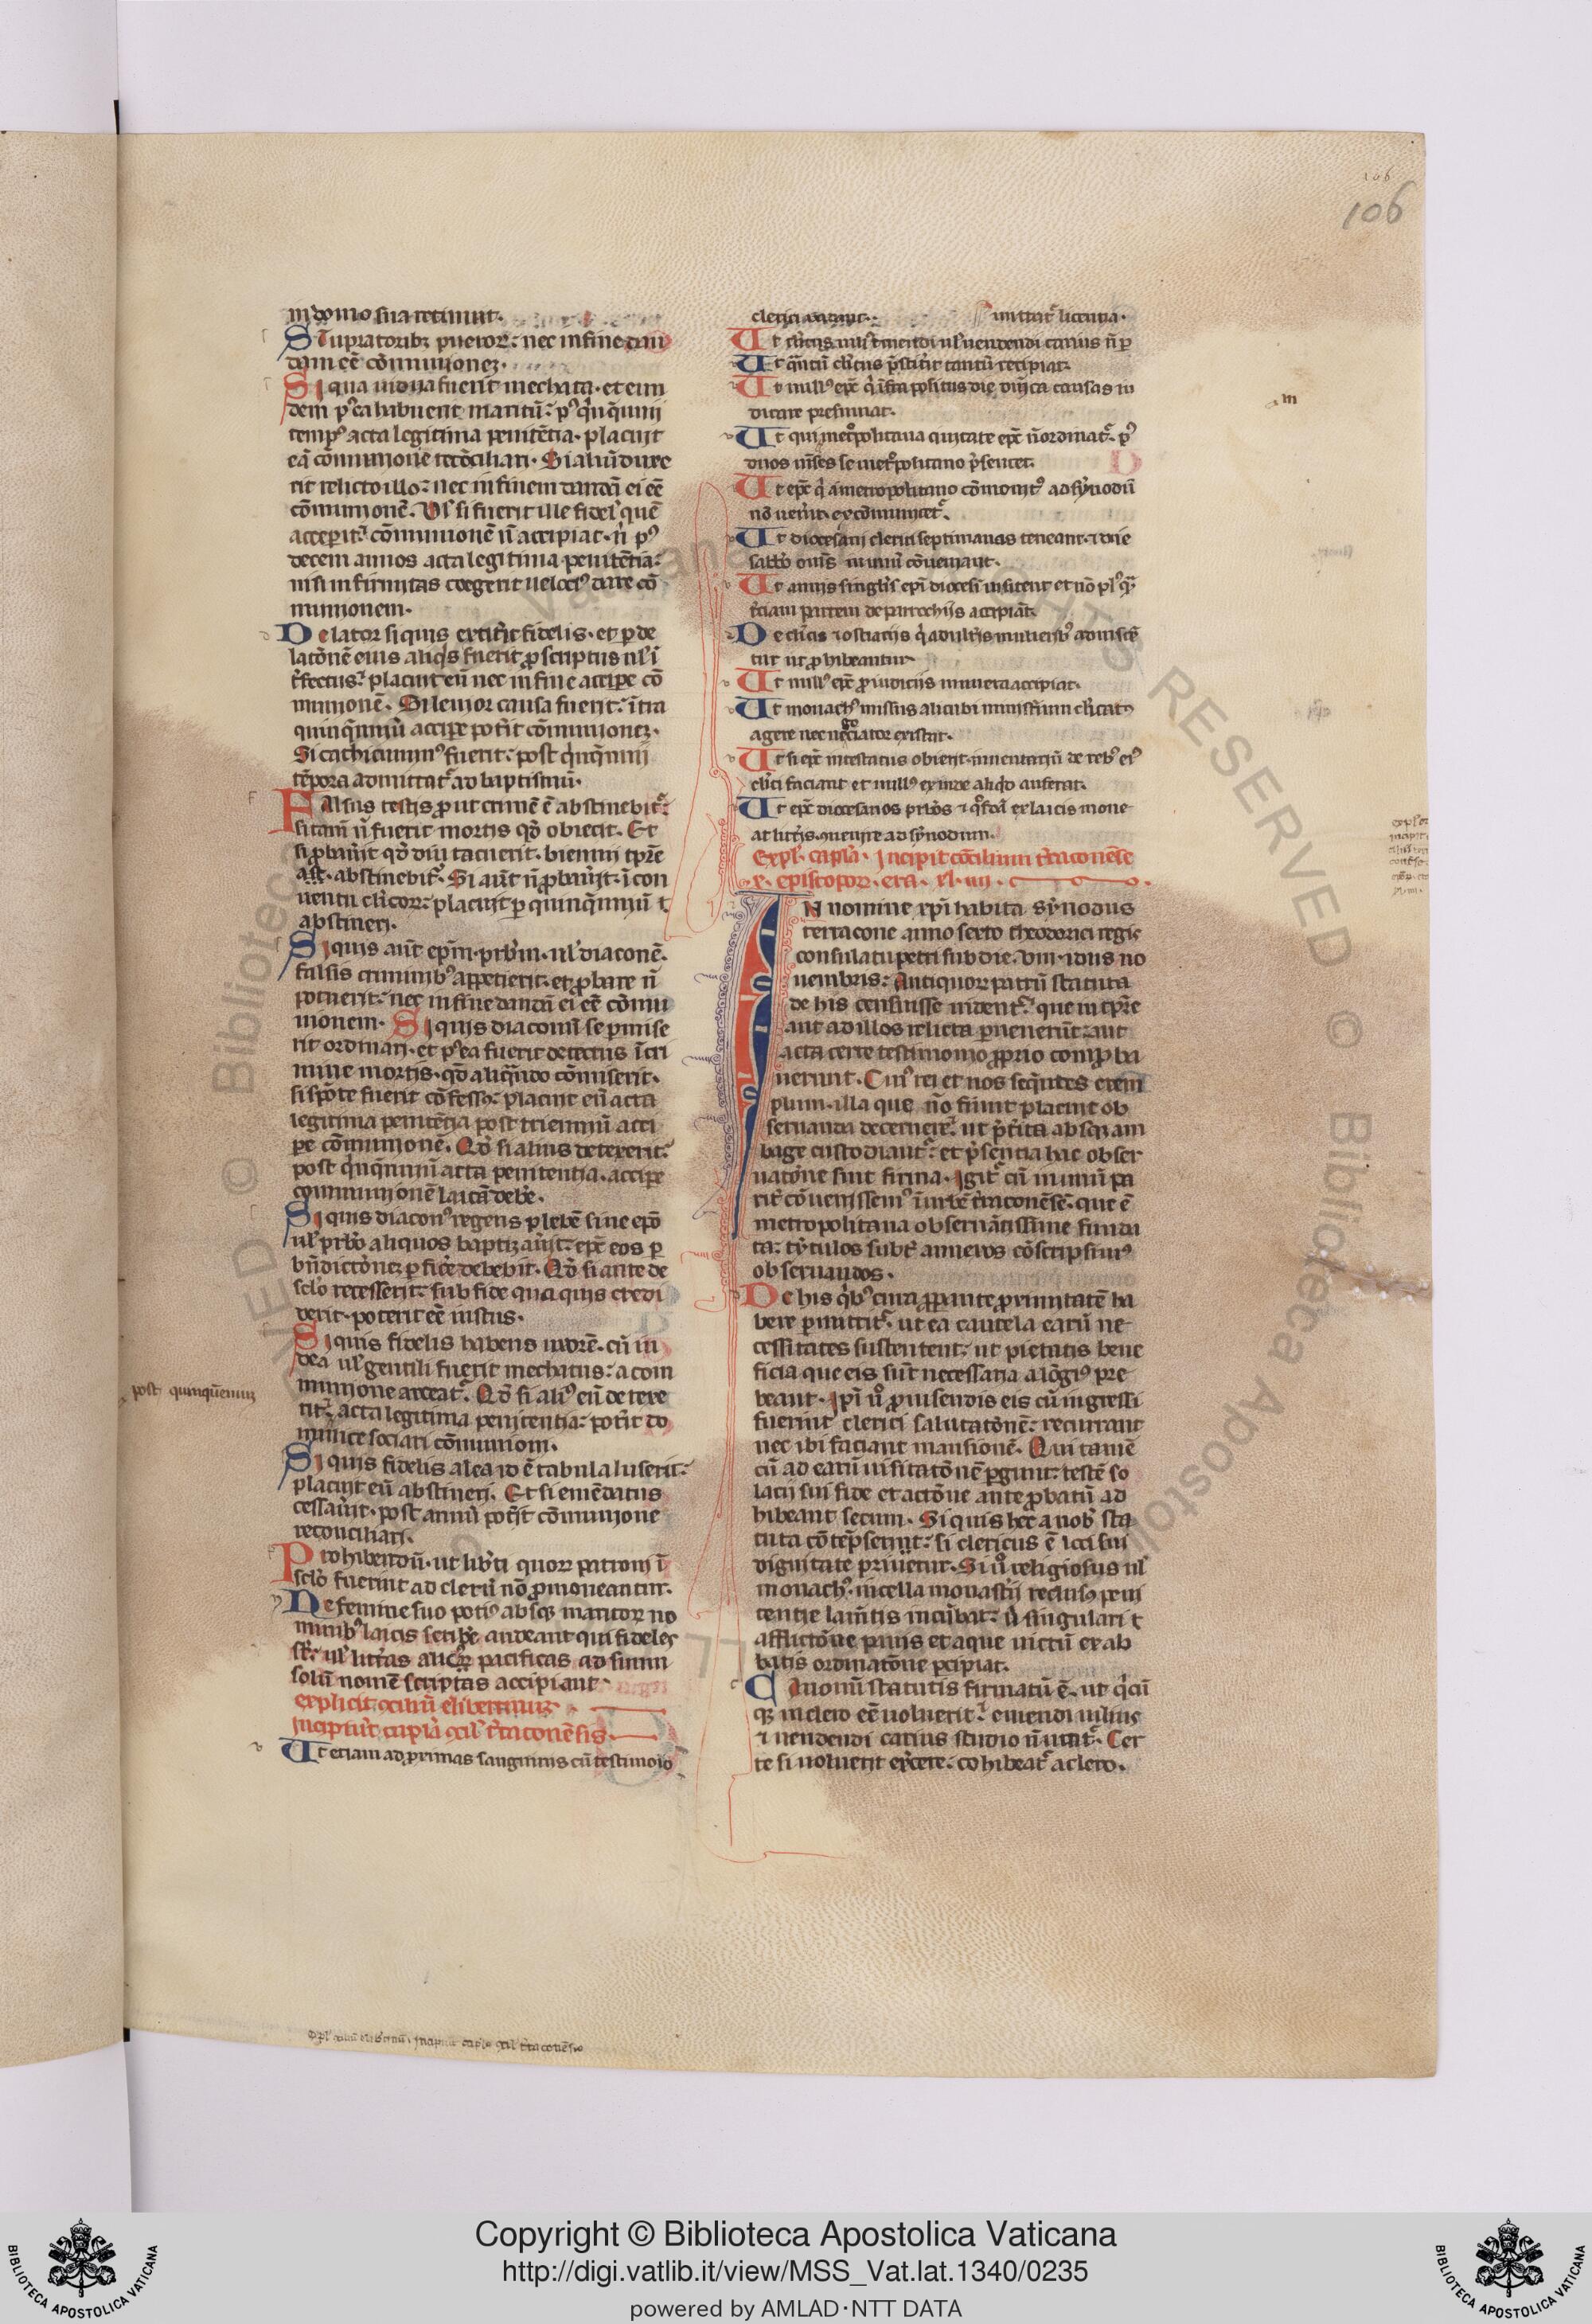 106
106
in domo sua retinuit.
Stupratoribꝫ pueroꝝ: nec in fine dan
dam eē cōmunionez.
Si qua uidua fuerit mechata. et eun
dem pꝰea habuerit maritū: pꝰ qͥnqͣnnij
tempꝰ acta legitima penitētia. placuit
eā cōmunione recōciliari. Si aliū duxe
rit relicto illo: nec in finem dandā ei eē
cōmunionē. Ul' si fuerit ille fidel' quē
acceperit: cōmunionē ñ accipiat. ñ pꝰ
decem annos acta legitima penitētia:
nisi infirmitas coegerit uelociꝰ dare cō
munionem.
Delator si quis extit'it fidelis. et ꝑ de
latōnē eius aliqͥs fuerit ꝓscriptus ul' ī
t'fectus: placuit eū nec in fine accipe cō
munionē. Si leuior causa fuerit: ītra
quinqͣnniū accipe pot'it cōmunionez.
Si cathicuminꝰ fuerit: post qͥnqͣnnij
tēpora admittatͬ ad baptismū.
Falsus testis ꝓut crimē ē abstinebitͬ:
si tam̄ ñ fuerit mortis qd̄ obiecit. Et
si ꝓbau'it qd̄ diu tacuerit. biennij tp̄re
abstinebitͬ. Si aūt ñ ꝓbau'it. ī con
uentu cl'icoꝝ: placuit ꝑ quinqͣnniū
abstineri.
Si quis aūt ep̄m. pr̄bm. ul' diaconē.
falsis criminibꝰ appetierit. et ꝓbare ñ
potuerit: nec in fine dandā ei eē cōmu
nionem. Si quis diaconū se ꝑmise
rit ordinari. et pꝰea fuerit detectus ī cri
mine mortis. qd̄ aliqͣndo cōmiserit.
si spōte fuerit cōfessꝰ: placuit eū acta
legitima penitētia post trienniū acci
pe cōmunionē. Qd̄ si alius detexerit:
post qͥnqͣnniū acta penitentia. accipe
cōmunionē laicā debe.
Si quis diaconꝰ regens plebē sine ep̄o
ul' pr̄bo aliquos baptizau'it: ep̄c eos ꝑ
bn̄dictōnez ꝑfic'e debebit. Qd̄ si ante de
sc̄lo recesserit: sub fide qua quis credi
derit. poterit eē iustus.
Si quis fidelis habens uxorē. cū iu
dea ul' gentili fuerit mechatus: a com
munione arceatͬ. Qd̄ si aliꝰ eū detexe
rit: acta legitima penitentia: pot'it do
post quinquēnniuz
minice sociari cōmunioni.
Si quis fidelis alea id ē tabula luserit:
placuit eū abstineri. Et si emēdatus
cessau'it. post annū pot'it cōmunione
reconciliari.
Prohibendū. ut lib'ti quoꝝ patroni ī
sc̄lo fuerint ad clerū nō ꝓmoueantur.
Ne femine suo potiꝰ absqꝫ maritoꝝ no
minibꝰ laicis scribe audeant qui fideles
st̄: ul' litt'as alicꝰ pacificas ad suum
solū nomē scriptas accipiant.
explicit ɔciliū elibertinuz
Incipiūt capl'a ɔcil' t'raconēsis
Ut etiam ad ꝓximas sanguinis cū testimoīo
clerici uadant.
mittatͬ licentia.
Ut cl'icus ul' emendi ul' uendendi carius ñ
Ut qͣntū cl'icus p̄stit'it tantū recipiat.
Ut nullꝰ ep̄c die dn̄ica causas iu
dicare presumat.
Ut qui in metͦpolitana ciuitate ep̄c ñ ordinatͬ. pꝰ
duos m̄ses se metͦpolitano p̄sentet.
Ut ep̄c qͥ a metropolitano cōmonitꝰ ad synodū
nō uen'it. excōmunicetͬ.
Ut diocesani clerici septimanas teneant. ⁊ die
sabb'o om̄s cōueniant.
Ut annis singl'is ep̄i diocesi uisitent et nō plꝰ qͣ
t'ciam partem de parrochijs accipiāt.
De cl'icis ⁊ ostiarijs qͥ adult'is mulieribꝰ admiscē
tur ut ꝓhibeantur
Ut nullꝰ ep̄c ꝓ iudicijs munera accipiat.
Ut monachꝰ missus alicubi ministeriū cl'icatꝰ
go
agere nec neciator existat.
Ut si ep̄c intestatus obierit. inuentariū de rebꝰ eiꝰ
cl'ici faciant et nullꝰ exinde aliqͥd auferat.
Ut ep̄c diocesanos pr̄bos ⁊ qͦsdā ex laicis mone
at litt'is. uenire ad synodum.
Expl' capl'a. Incipit cōcilium t'raconēse
x. episcopoꝝ. era. xl. iiij.
IN nomine xp̄i habita synodus
terracone anno sexto theoderici regis
consulatu petri sub die. viij. idus no
uembris: Antiquoꝝ patrū statuta
de his censuisse uidentͬ. que in tp̄re
aut ad illos relicta ꝑuenerūt: aut
acta certe testimonio ꝓprio comꝓba
uerunt. Cuiꝰ rei et nos seqͣntes exem
plum. illa que nō fiunt placuit ob
seruanda decernere: ut p̄t'ita absqꝫ am
bage custodiantͬ: et p̄sentia hac obser
uatōne sint firma. Igitͬ cū in unū pa
rit' cōuenissemꝰ ī urbē t'raconēsē. que ē
metropolitana obseruātissime funda
ta: tytulos subt' annexos cōscripsimꝰ
obseruandos.
De his qͥbꝰ cura ꝓpinqͥtatē ha
bere ꝑmittitͬ. ut ea cautela earū ne
cessitates sustentent: ut pietatis bene
ficia que eis sūt necessaria a lōgiꝰ pre
beant. Ipī u° ꝓuisendis eis cū ingressi
fuerint clerici salutatōnē: recurrant
nec ibi faciant mansionē. Qui tamē
cū ad earū uisitatōnē ꝑgunt: testē so
latij sui fide et actōne ante ꝓbatū ad
hibeant secum. Si quis hec a nobꝰ sta
tuta cōtēpserint: si clericus ē loci sui
dignitate priuetur. Si u° religiosus ul'
monachꝰ. in cella monast'ij reclusꝰ peni
tentie lam̄tis incūbat: u° singulari
afflictōne panis et aque uictū ex ab
batis ordinatōne ꝑcipiat.
Canonū statutis firmatū ē. ut qͥcū
qꝫ in clero eē uoluerit: emendi uilius
⁊ uendendi carius studio ñ utatͬ. Cer
te si uoluerit exc'ere: cohibeatͬ a clero.
Copyright © Biblioteca Apostolica Vaticana
http://digi.vatlib.it/view/MSS_Vat.lat.1340/0235
powered by AMLAD·NTT DATA
BIBLIOTECA APOSTOLICA VATICANA
BIBLIOTECA APOSTOLICA VATICANA